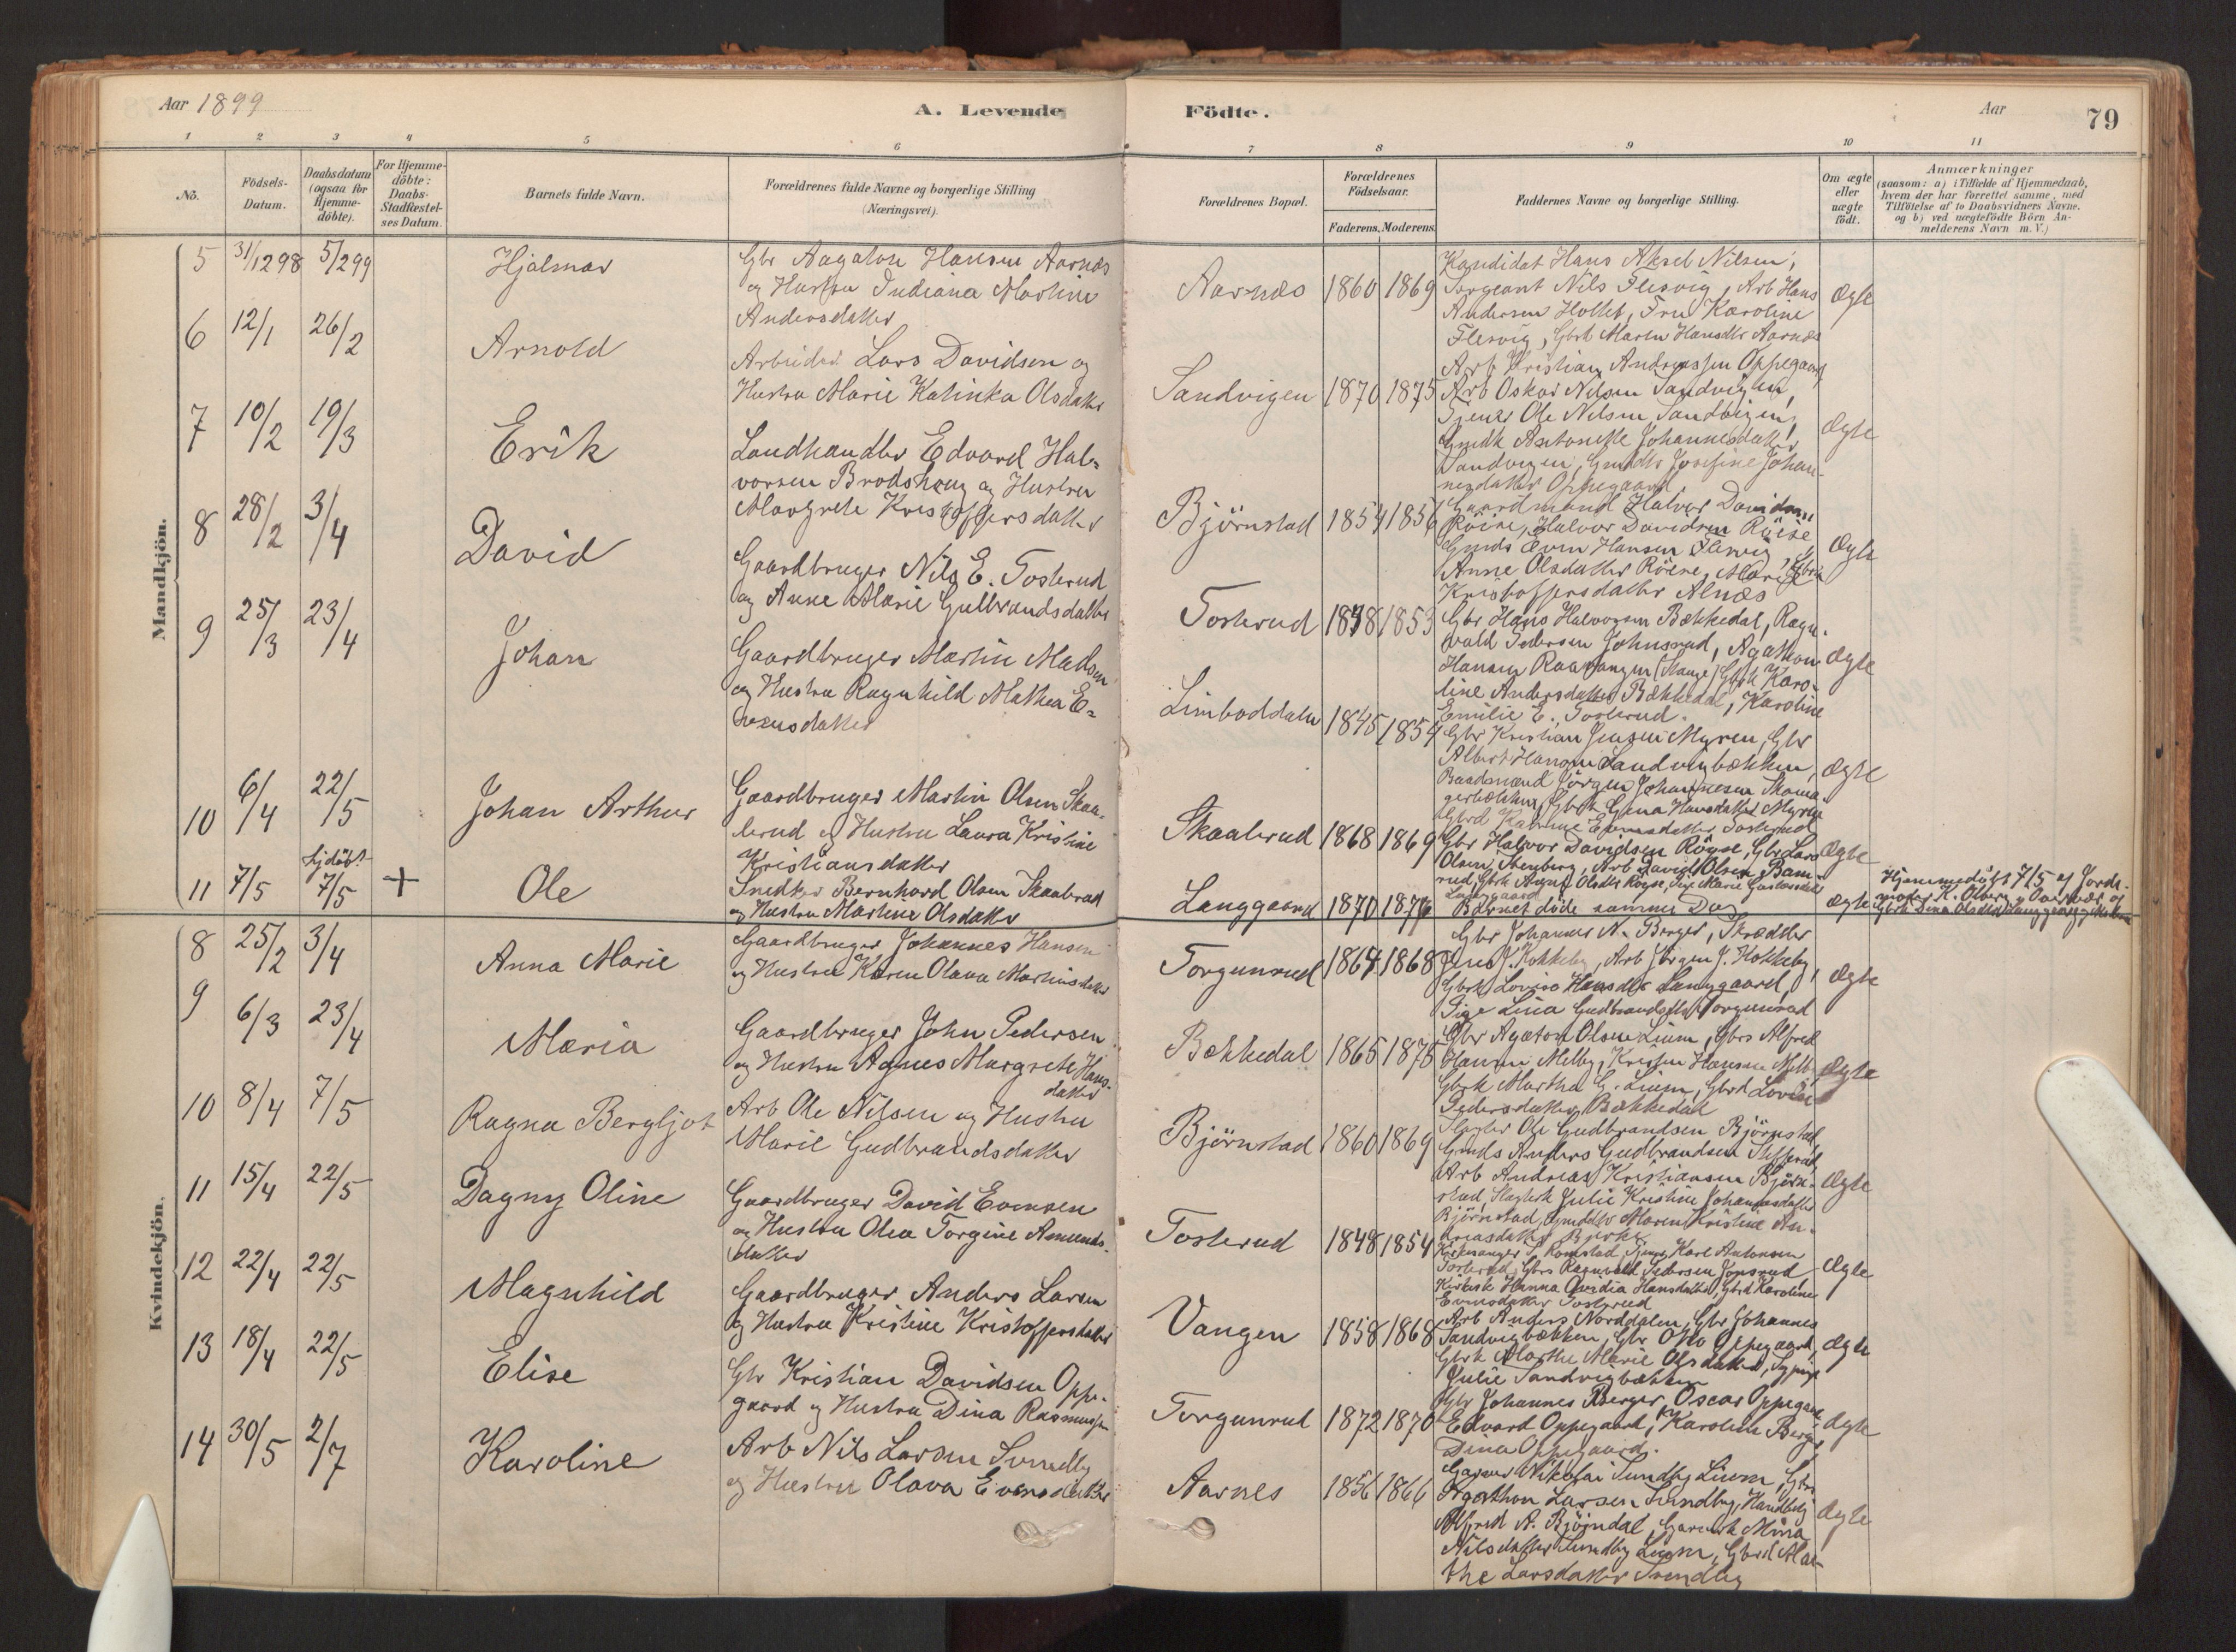 Aar 1899
A. Levende
Födte.
Aar
79
1 2 3 4 5 6 7 8 9 10 11
Nö.
Födsels-
Datum.
Daabsdatum
(ogsaa for
Hjemme-
döbte).
For Hjemme-
döbte:
Daabs-
Stadfestel-
ses Datum.
Barnets fulde Navn.
Forældrenes fulde Navne og borgerlige Stilling
(Næringsvei).
Forældrenes Bopæl.
Forældrenes
Födselsaar.
Faderens. Moderens.
Faddernes Navne og borgerlige Stilling.
Om ægte
eller
uægte
födt.
Anmærkninger
(saasom: a) i Tilfælde af Hjemmedaab,
hvem der har forrettet samme, med
Tilföielse af to Daabsvidners Navne.
og b) ved uægtefödte Börn An-
melderens Navn m.V.)
Mandkjön.
5 31/12 98 5/2 99 Hjalmar
Gbr Aagaton Hansen Aarnæs
og Hustru Indiana Martine
Andersdatter
Aarnæs 1860 1869
Kandidat Hans Aksel Nilsen,
Sergeant Nils Flesvig, Arb Hans
Andersen Holtet, Fru Karoline
Flesvig, Gbrk Maren Hansdtr Aarnæs
Ægte
6 12/1 26/2 Arnold
Arbeider Lars Davidsen og
Hustru Marie Katinka Olsdatter
Sandvigen 1870 1875
Arb Kristian Andreassen Oppegaard
Arb Oskar Nilsen Sandvigen,
Tjener Ole Nilsen Sandvigen,
Gmdk Antonette Johannesdatter
Sandvigen, Gmdtr Josefine Johan-
nesdatter Oppegaard
Ægte
7 10/2 19/3 Erik
Landhandler Edvard Hal-
vorsen Brodshaug og Hustru
Margrete Kristoffersdatter
Björnstad 1854 1856
Gaardmand Halvor Davidsen
Röine, Halvor Davidsen Röise
Gmds Even Hansen Flesvig,
Anne Olsdatter Röine, Marie
Kristoffersdatter Alnæs
Ægte
8 28/2 3/4 David
Gaardbruger Nils E. Tosterud
og Anne Marie Gulbrandsdatter
Tosterud 1848 1853
Gbr Hans Halvorsen Bækkedal, Ragn-
vald Pedersen Johnsrud, Agathon
Hansen (Stange) Gbrk Karo-
line Andersdatter Bækkedal, Karoline
Emilie E. Tosterud.
Ægte
9 25/3 23/4 Johan
Gaardbruger Martin Madsen
og Hustru Ragnhild Mathea E-
vensdatter
Limboddalen 1845 1854
Gbr Kristian Jensen Myren, Gbr
Albert Hansen Sandvigbækken,
Baadsmand Jörgen Johannesen Skoma-
gerbækken, Gbrk Gina Hansdatter Myren
Gbrd Katrine Evensdatter Tosterud
Ægte
10 6/4 22/5 Johan Arthur
Gaardbruger Martin Olsen Skaa-
lerud og Hustru Laura Kristine
Kristiansdatter
Skaalerud 1868 1869
Gbr Halvor Davidsen Röyse, Gbr Lars
Olsen Stenberg, Arb David Olsen Bam-
rud, Gbrk Olsdtr Röyse, Pige Marie
Langgaard
Ægte
11 7/5 Hjdöbt 7/5 + Ole
Snedker Bernhard Olsen Skaalerud
og Hustru Martine Olsdatter
Langgaard 1870 1876
Barnet döde samme Dag
Ægte
Hjemmedöbt 7/5 af Jorde-
moder K. Olberg,
Gbrk Dina Olsdtr Langgaard
Kvindekjön.
8 25/2 3/4 Anna Marie
Gaardbruger Johannes Hansen
og Hustru Karen Olava Martinsdatter
Torgunrud 1864 1868
Gbr Johannes N. Berger, Skrædder
Jens J. Kokkeby, Arb Jörgen J. Kokkeby,
Gbrk Lovise Hansdtr Langgaard,
Pige Lina Gudbrandsdtr Torgunrud
Ægte
9 6/3 23/4 Maria
Gaardbruger John Pedersen
og Hustru Agnes Margrete Hans-
datter
Bækkedal 1865 1875
Gbr Agaton Olsen Lium, Gbrs Alfred
Hansen Melby, Kristen Hansen Melb
Gbrk Martha G. Lium, Gbrd Lovise
Pedersdatter Bækkedal
Ægte
10 8/4 7/5 Ragna Bergljot
Arb Ole Nilsen og Hustru
Marie Gudbrandsdatter
Björnstad 1860 1869
Slagter Ole Gudbrandsen Björnstad,
Gmds Anders Gudbrandsen
Arb Andreas Kristiansen Björn-
stad, Slagterk Julie Kristine Johannesdatter
Björnstad, Gmddtr Maren Kristine An-
dreasdatter Bjerke
Ægte
11 15/4 22/5 Dagny Oline
Gaardbruger David Evensen
og Hustru Olea Torgine Amunds-
datter
Tosterud 1848 1854
Kirkesanger T. Romstad, Tjener Karl Antonsen
Tosterud, Gbrs Ragnvald Pedersen Jonsrud
Kirkesk Hanna Ovidia Hansdatter, Gbrd Karoline
Evensdatter Tosterud
Ægte
12 22/4 22/5 Magnhild
Gaardbruger Anders Larsen
og Hustru Kristine Kristoffersdatter
Vangen 1858 1868
Arb Anders Norddalen, Gbr Johannes
Sandvigbækken, Gbr Otto Oppegaard,
Gbrk Marthe Marie Olsdatter, Sypige
Julie Sandvigbækken
Ægte
13 18/4 22/5 Elise
Gbr Kristian Davidsen Oppe-
gaard og Hustru Dina Rasmussen
Torgunrud 1872 1870
Gbr Johannes Berger, Oscar Oppegaard
Edvard Oppegaard, Karoline Berger
Dina Oppegaard.
Ægte
14 30/5 2/7 Karoline
Arb Nils Larsen Svendby
og Hustru Olava Evensdatter
Aarnes 1856 1866
Garver Nikolai Sundby Lium, Gbr
Agathon Larsen Svendby, Handelsb
Alfred A. Björndal, Garverk Mina
Nilsdatter Sundby Lium, Gbrd Mar-
the Larsdatter Svendby
Ægte